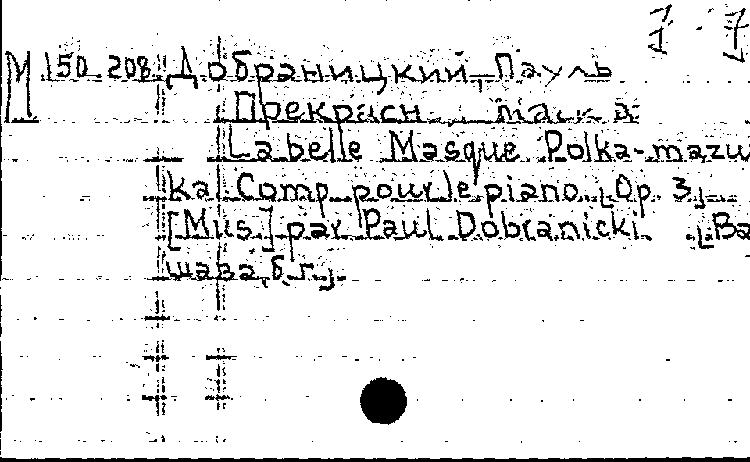 7 - 7
М 150 208 Добраницкий, Пауль
Прекрасн маска
La belle Masque Polka-mazu
ka Comp pour le piano [Op. 3]
[Mus.] par Paul Dobranicki [Ва
шава, б. г.].